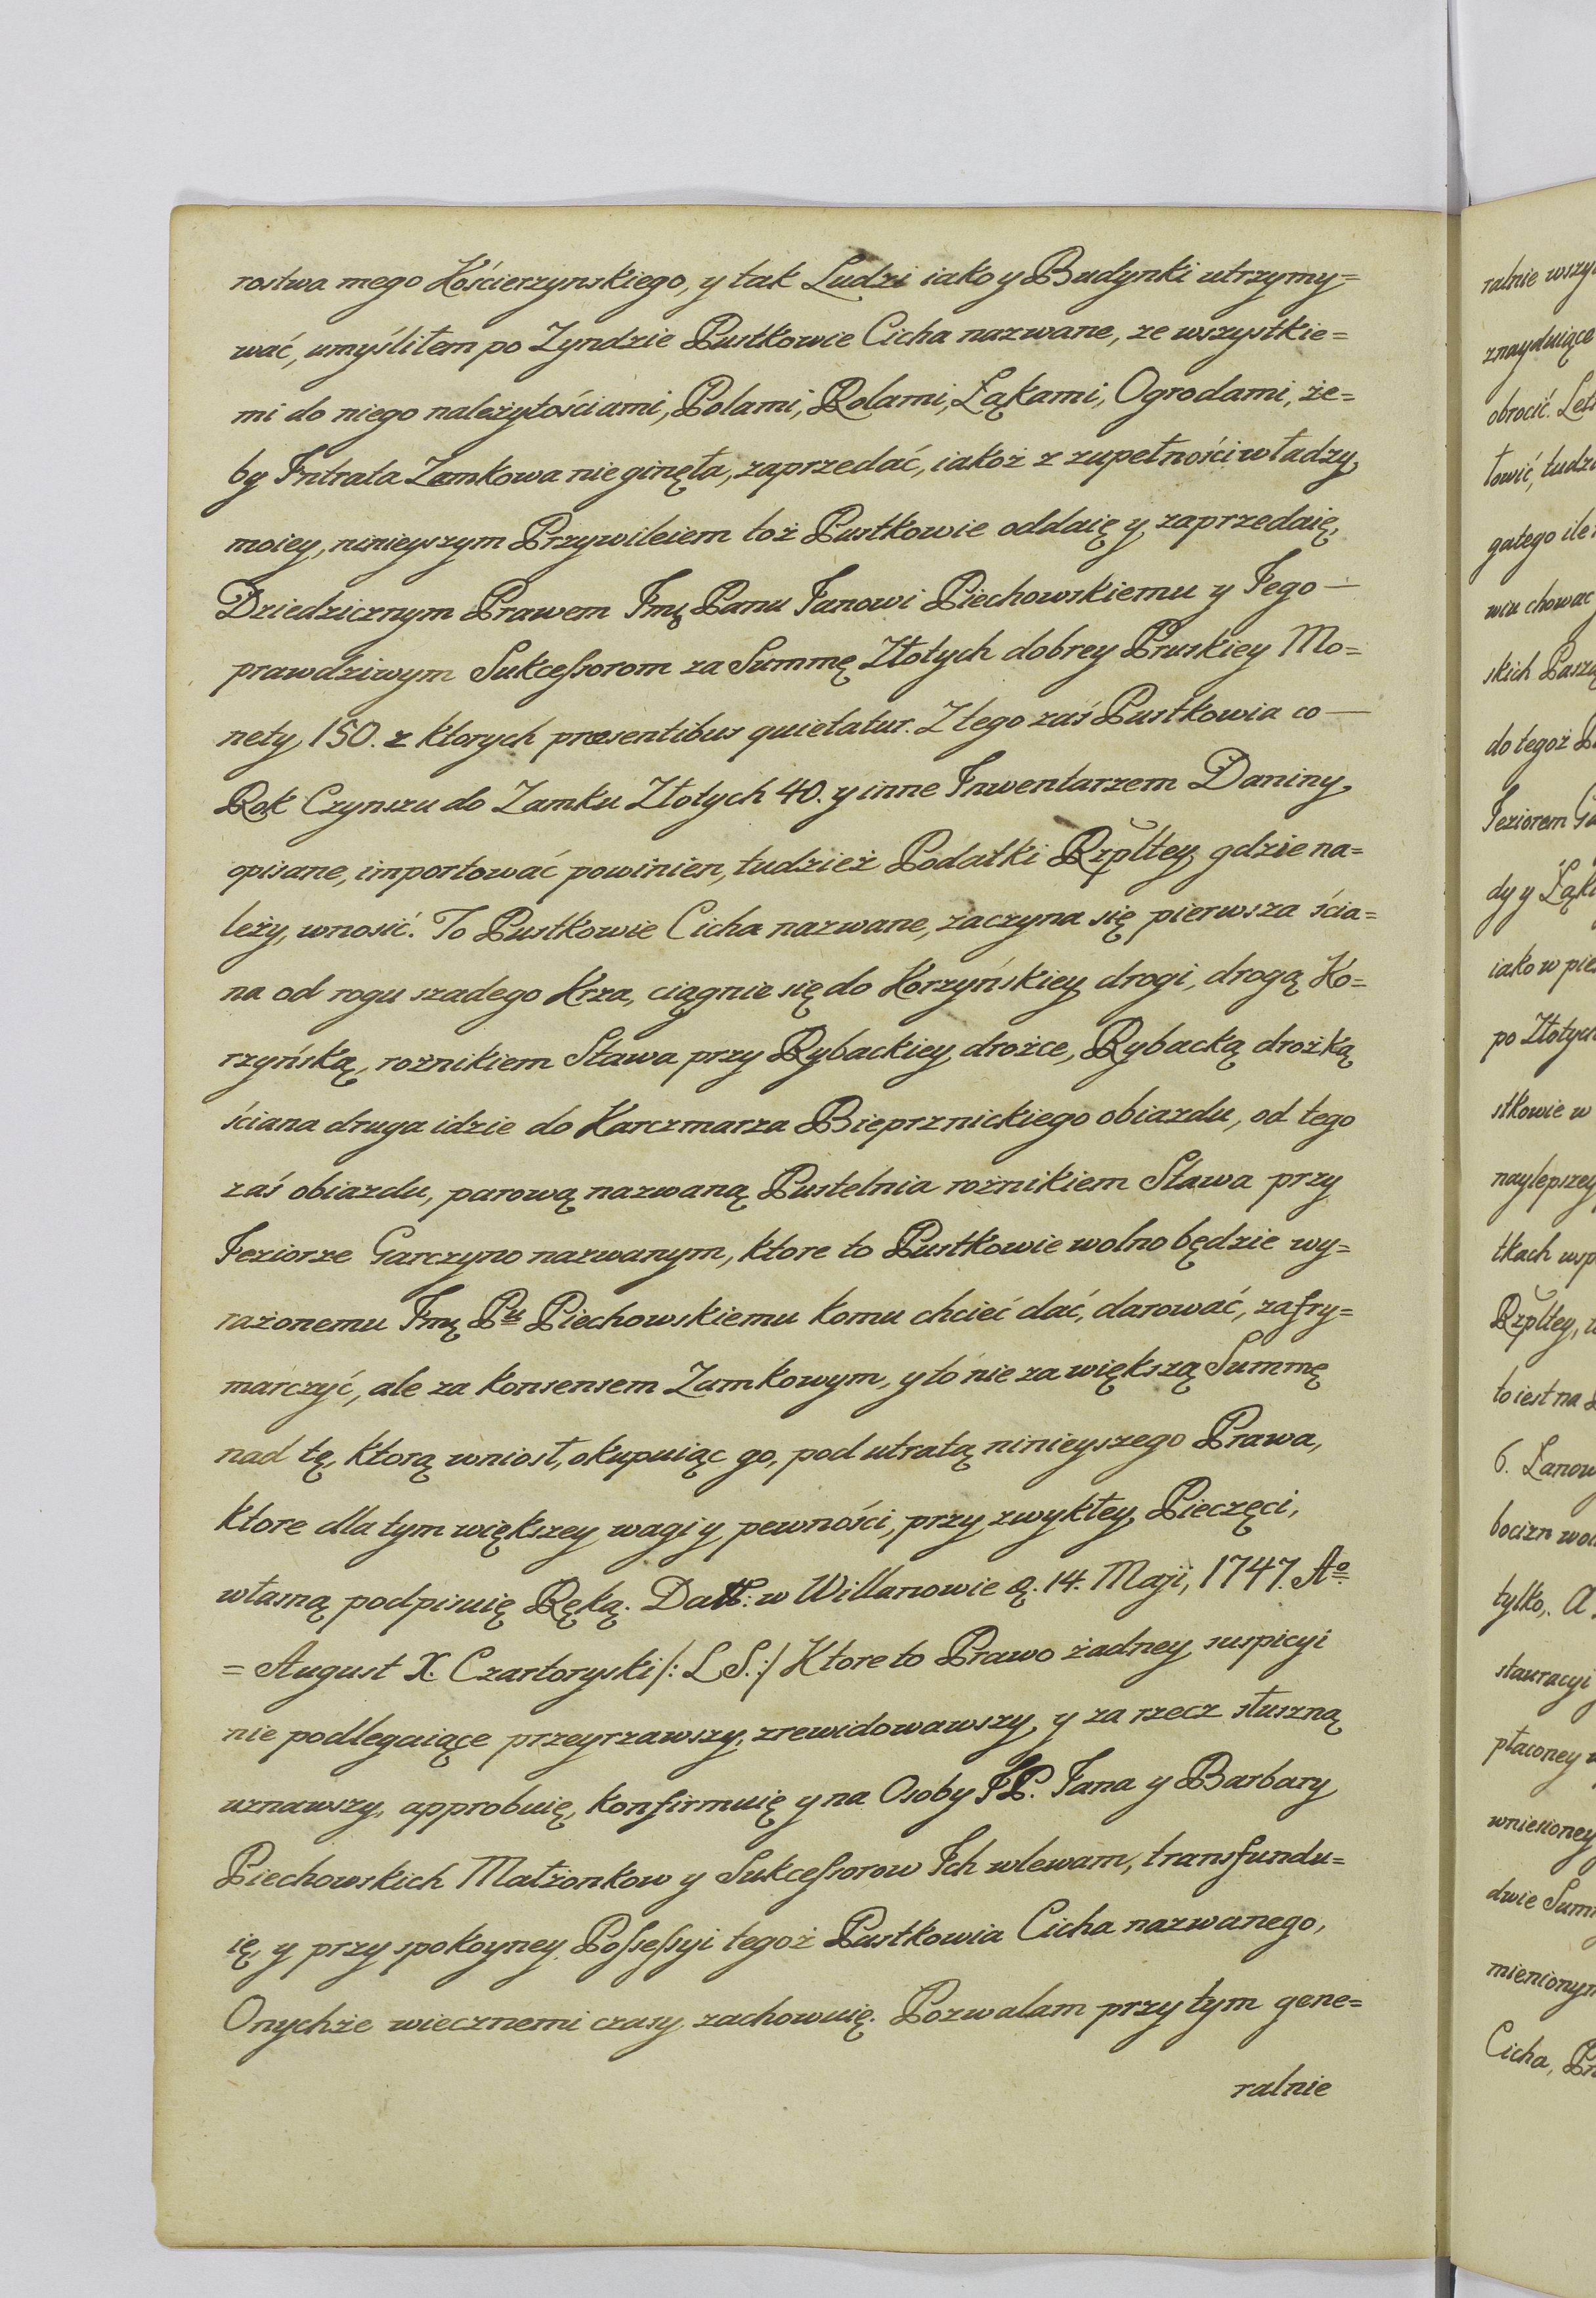 rostwa mego Kościerzynskiego, y tak Ludzi iako y Budynki utrzymy=
wać, umyśliłem po Zyndzie Pustkowie Cicha nazwane, ze wszystkie=
mi do niego należytościami, Polami, Rolami, Łąkami, Ogrodami, że=
by Intrata Zamkowa nie ginęła, zaprzedać, iakoż z zupełności władzy
moiey, ninieyszym Przywileiem toż Pustkowie oddaię y zaprzedaię,
Dziedzicznym Prawem Jmę Panu Janowi Piechowskiemu y Jego —
prawdziwym Sukcessorom za Summę Złotych dobrey Pruskiey Mo=
nety, 150. z ktorych præsentibus quietatur. Z tego zaś Pustkowia co —
Rok Czynszu do Zamku Złotych 40. y inne Inwentarzem Daniny
opisane, importować powinien, tudzież Podatki Rzpltey, gdzie na=
leży, wnosić. To Pustkowie Cicha nazwane, zaczyna się pierwsza ścia=
na od rogu szadego Krza, ciągnie się do Korzyńskiey drogi, drogą Ko=
rzyńską, rożnikiem Stawa przy Rybackiey drożce, Rybacką drożką
ściana druga idzie do Karczmarza Bieprznickiego obiazdu, od tego
zaś obiazdu, parową nazwaną Pustelnia rożnikiem Stawa przy
Jeziorze Garczyno nazwanym, ktore to Pustkowie wolno będzie wy=
rażonemu Jmę Pu Piechowskiemu komu chcieć dać, darować, zafry=
marczyć, ale za konsensem Zamkowym, y to nie za większą Summę
nad tę, ktorą wniosł, okupuiąc go, pod utratą ninieyszego Prawa,
ktore dla tym większey wagi y pewności, przy zwykłey Pieczęci,
własną podpisuię Ręką. Datt: w Willanowie d. 14. Maji, 1747. Ao
= August X. Czartoryski /: L S. :/ Ktore to Prawo żadney suspicyi
nie podlegaiące przeyrzawszy, zrewidowawszy, y za rzecz słuszną
uznawszy, approbuię, konfirmuię y na Osoby JP. Jana y Barbary
Piechowskich Małżonkow y Sukcessorow Ich wlewam, transfundu=
ię, y przy spokoyney Possessyi tegoż Pustkowia Cicha nazwanego,
Onychże wiecznemi czasy zachowuię. Pozwalam przy tym gene=
ralnie
ralnie
znayduiące
obrocić.
łowić,
gatego ile
wiu chowac
skich
do tegoż
Jeziorem
dy y
iako w
po Złotych
stkowie w
naylepszey
tkach
Rzpltey,
to iest na
6. Łanow
bocizn
tylko,. A
stauracyi
płaconey
wniesioney
dwie
mienionym
Cicha,